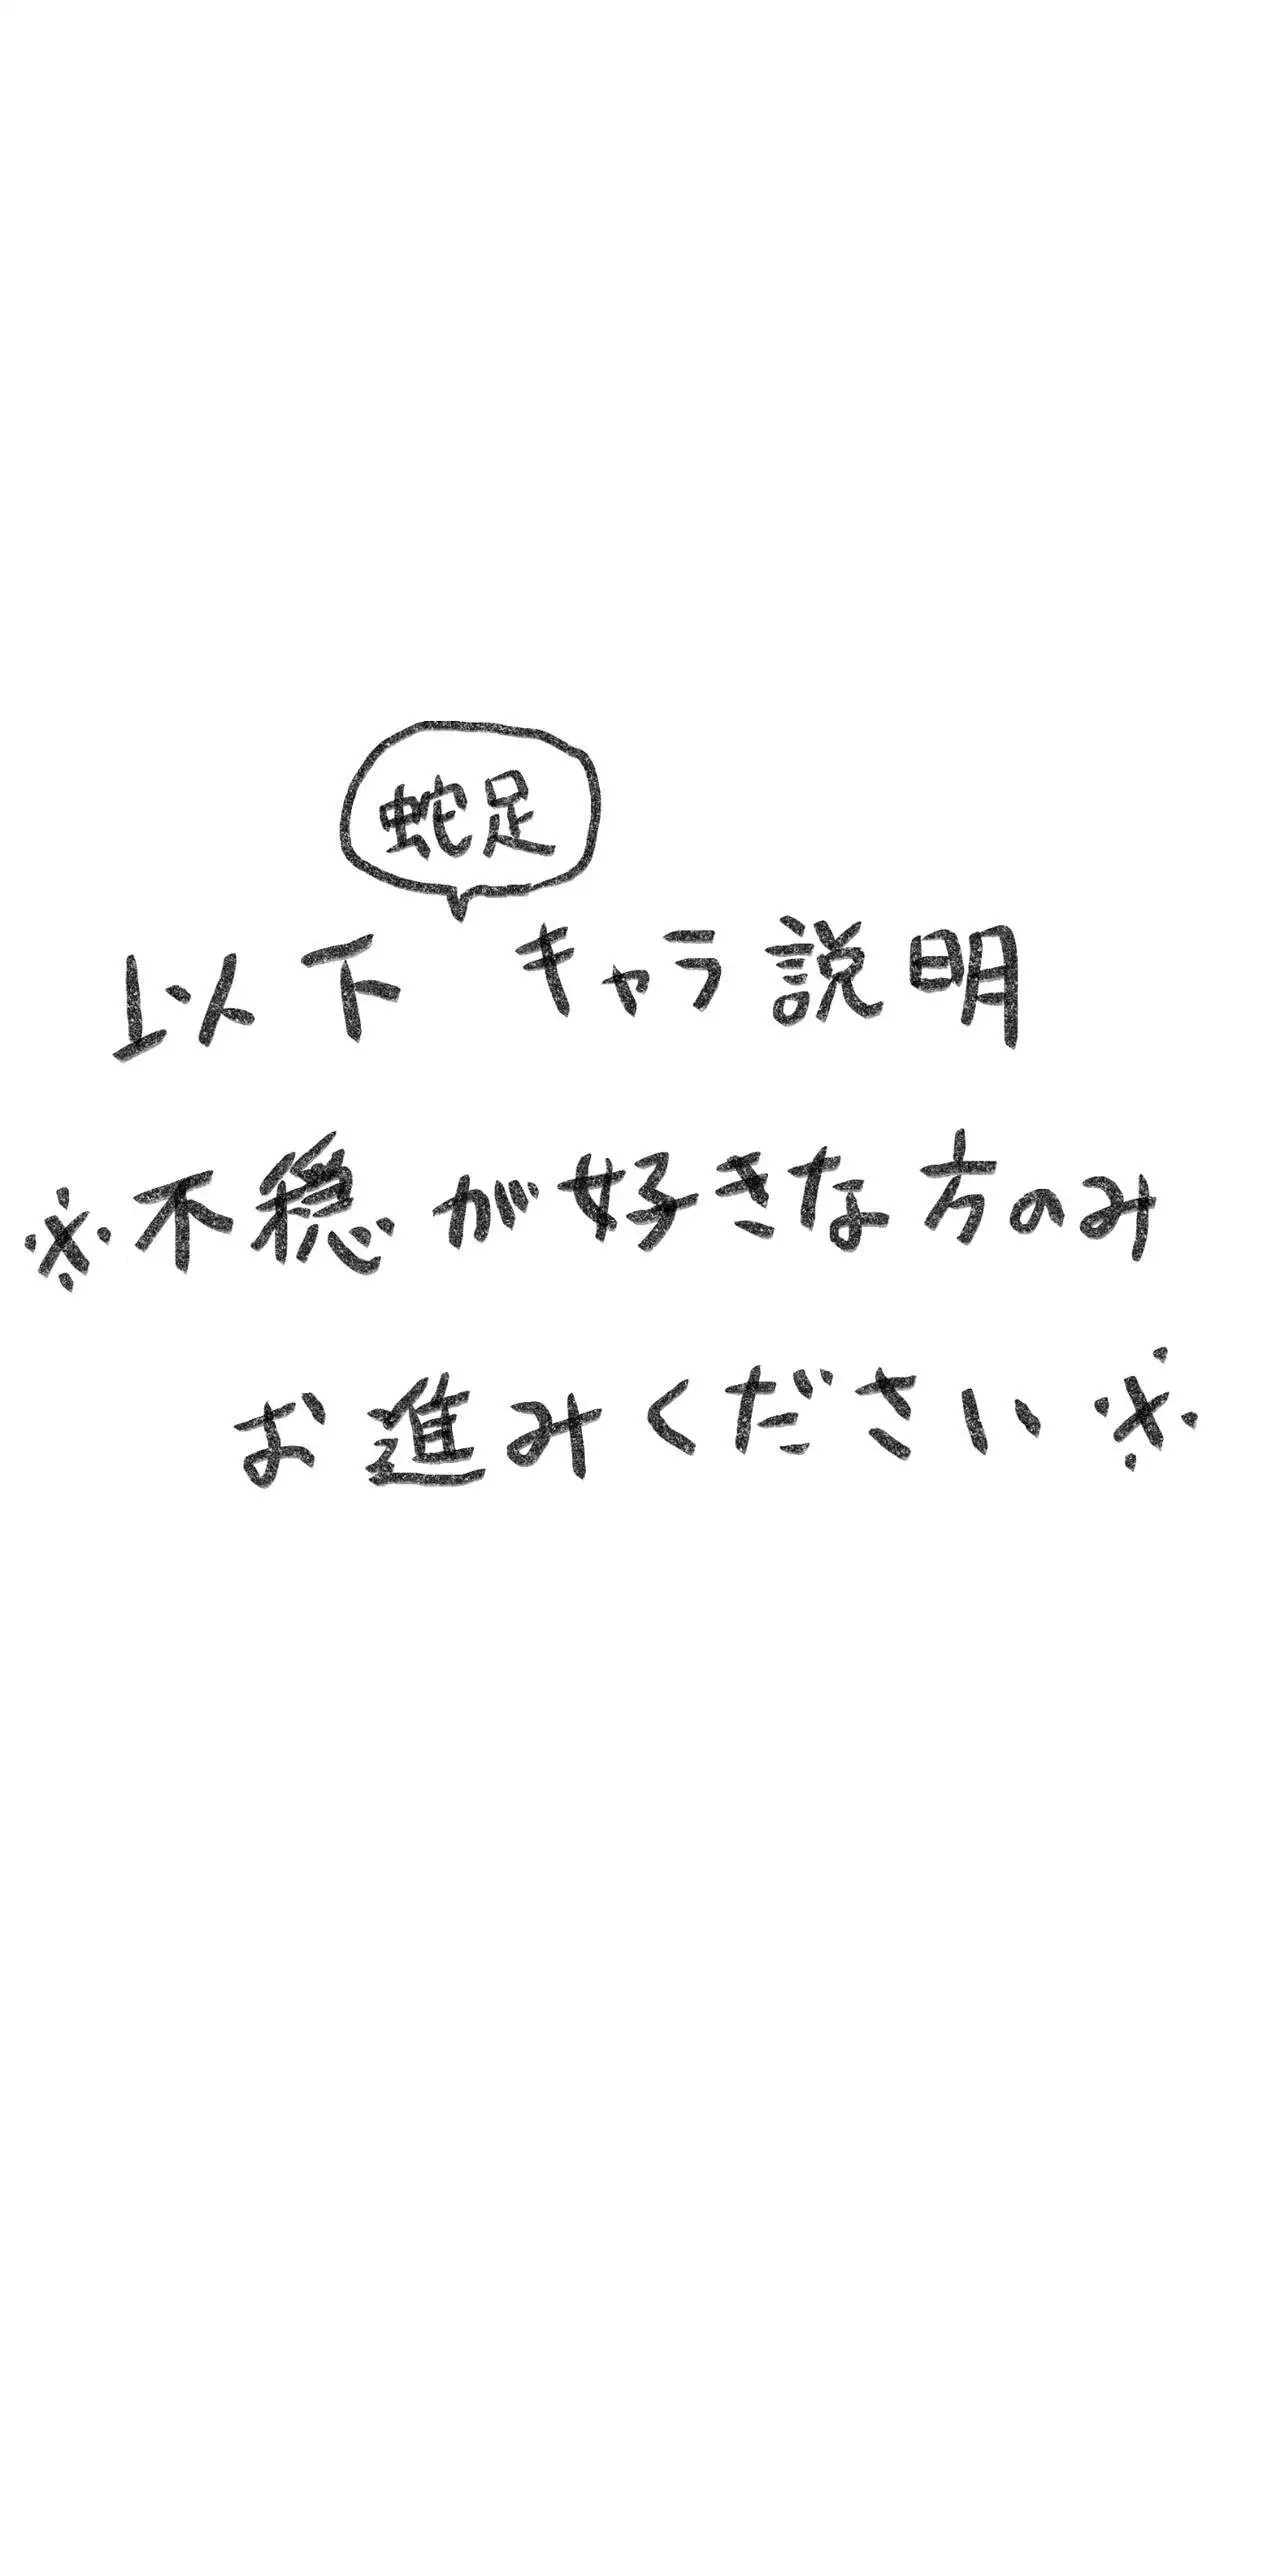 蛇足
以下 キャラ説明
※不穏が好きな方のみ
お進みください※